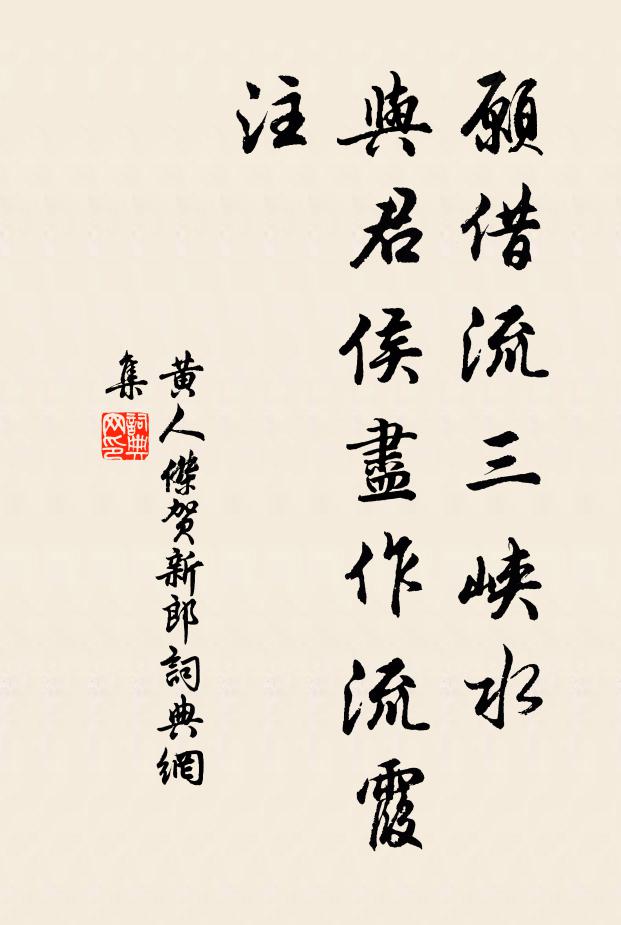 願借流三峽水
與君侯盡作流霞
注
黄人傑賀新郎詞典網
集
詞典网印